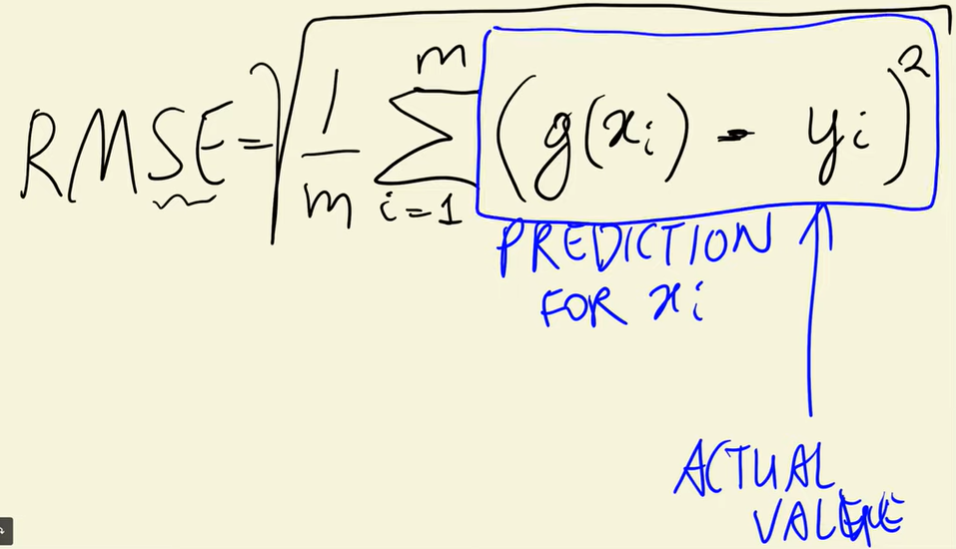 RMSE = √ 1/m m∑i=1 (g(xi) - yi)²
PREDICTION
FOR xi
ACTUAL